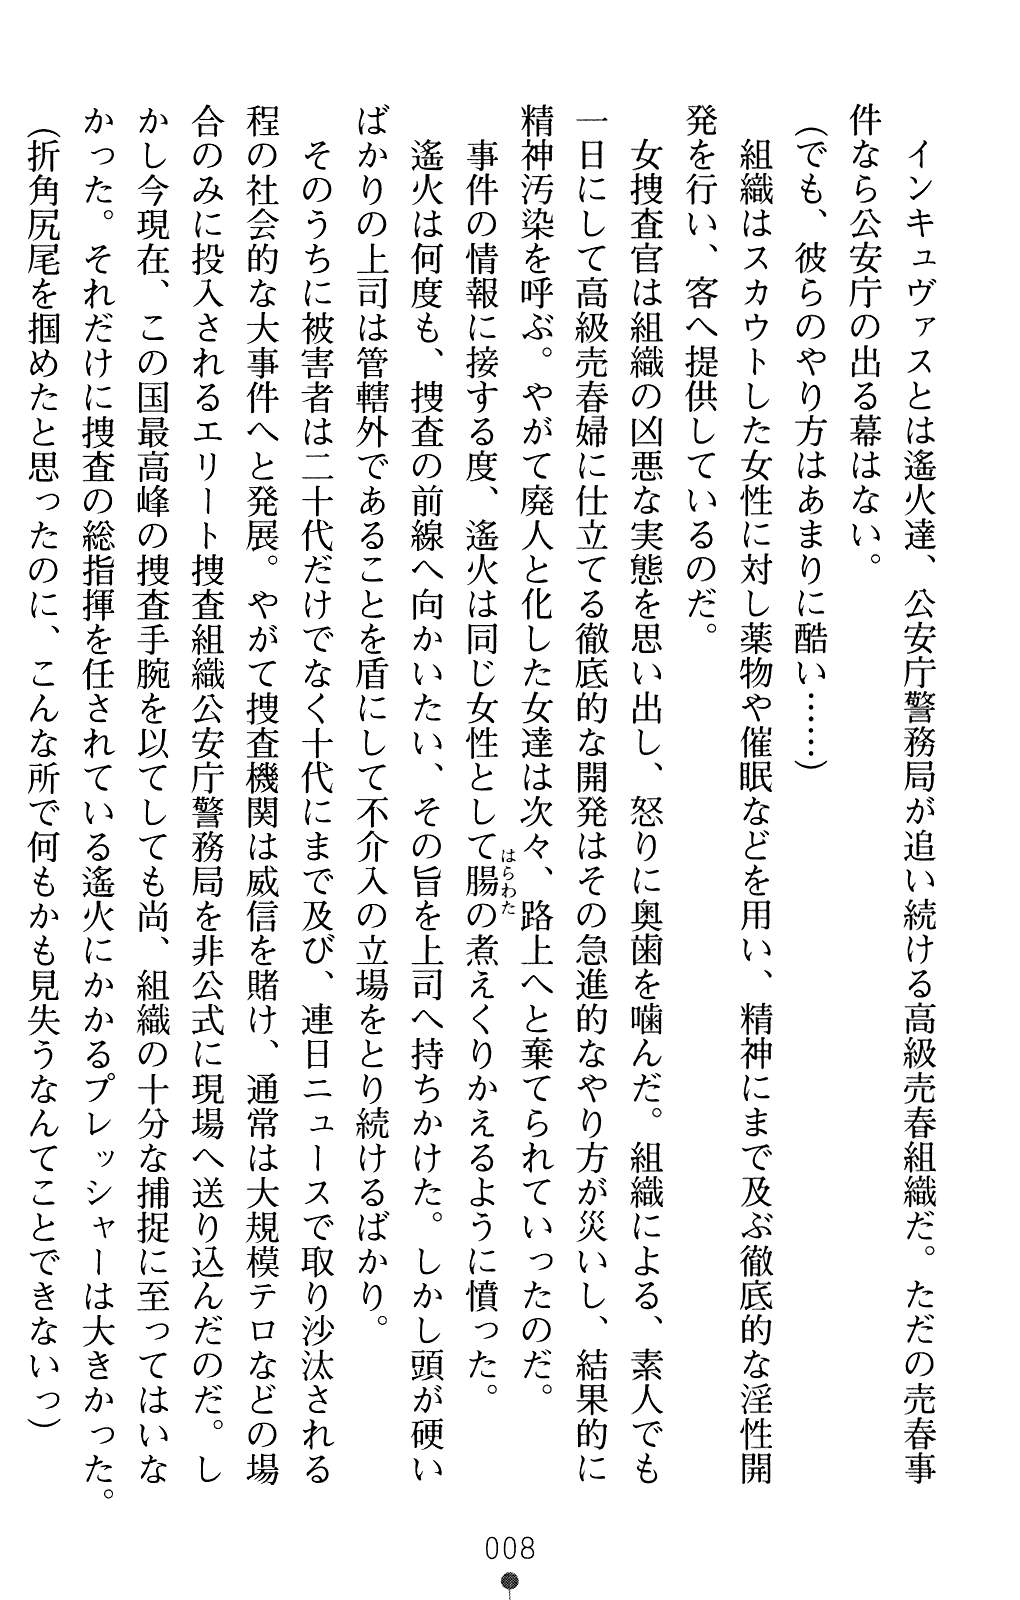 インキュヴァスとは遙火達、公安庁警務局が追い続ける高級売春組織だ。ただの売春事
件なら公安庁の出る幕はない。
（でも、彼らのやり方はあまりに酷い……）
組織はスカウトした女性に対し薬物や催眠などを用い、精神にまで及ぶ徹底的な淫性開
発を行い、客へ提供しているのだ。
女捜査官は組織の凶悪な実態を思い出し、怒りに奥歯を噛んだ。組織による、素人でも
一日にして高級売春婦に仕立てる徹底的な開発はその急進的なやり方が災いし、結果的に
精神汚染を呼ぶ。やがて廃人と化した女達は次々、路上へと棄てられていったのだ。
事件の情報に接する度、遙火は同じ女性として腸の煮えくりかえるように憤った。
はらわた
遙火は何度も、捜査の前線へ向かいたい、その旨を上司へ持ちかけた。しかし頭が硬い
ばかりの上司は管轄外であることを盾にして不介入の立場をとり続けるばかり。
そのうちに被害者は二十代だけでなく十代にまで及び、連日ニュースで取り沙汰される
程の社会的な大事件へと発展。やがて捜査機関は威信を賭け、通常は大規模テロなどの場
合のみに投入されるエリート捜査組織公安庁警務局を非公式に現場へ送り込んだのだ。し
かし今現在、この国最高峰の捜査手腕を以てしても尚、組織の十分な捕捉に至ってはいな
かった。それだけに捜査の総指揮を任されている遙火にかかるプレッシャーは大きかった。
（折角尻尾を掴めたと思ったのに、こんな所で何もかも見失うなんてことできないっ）
008